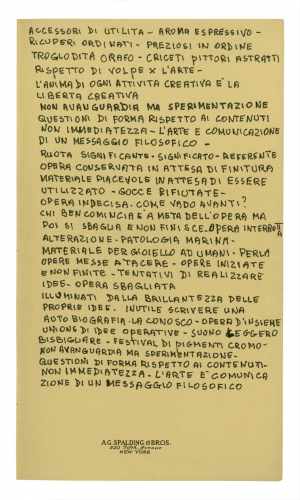 ACCESSORI DI UTILITA - AROMA ESPRESSIVO -
RICUPERI ORDINATI - PREZIOSI IN ORDINE
TROGLODITA ORAFO - CRICETI PITTORI ASTRATTI
RISPETTO DI VOLPE X L'ARTE -
L'ANIMA DI OGNI ATTIVITA CREATIVA E' LA
LIBERTA CREATIVA
NON AVANGUARDIA MA SPERIMENTAZIONE
QUESTIONI DI FORMA RISPETTO AI CONTENUTI
NON IMMEDIATEZZA - L'ARTE E COMUNICAZIONE
DI UN MESSAGGIO FILOSOFICO -
RUOTA SIGNIFICANTE - SIGNIFICATO - REFERENTE
OPERA CONSERVATA IN ATTESA DI FINITURA
MATERIALE PIACEVOLE IN ATTESA DI ESSERE
UTILIZZATO - GOCCE RIFIUTATE -
OPERA INDECISA. COME VADO AVANTI?
CHI BEN COMINCIA E' A META DELL'OPERA MA
POI SI SBAGLIA E NON FINISCE - OPERA INTERROTTA
ALTERAZIONE - PATOLOGIA MARINA -
MATERIALE PER GIOIELLO AD UMANI - PERLA
OPERE MESSE A TACERE - OPERE INIZIATE
E NON FINITE - TENTATIVI DI REALIZZARE
IDEE - OPERA SBAGLIATA
ILLUMINATI DALLA BRILLANTEZZA DELLE
PROPRIE IDEE. INUTILE SCRIVERE UNA
AUTOBIOGRAFIA - LA CONOSCO - OPERA D'INSIEME
UNIONE DI IDEE OPERATIVE - SUONO LEGGERO
BISBIGLIARE - FESTIVAL DI PIGMENTI CROMO -
NON AVANGUARDIA MA SPERIMENTAZIONE -
QUESTIONI DI FORMA RISPETTO AI CONTENUTI -
NON IMMEDIATEZZA - L'ARTE E' COMUNICA
ZIONE DI UN MESSAGGIO FILOSOFICO
A.G. SPALDING & BROS.
520 Fifth Avenue
NEW YORK